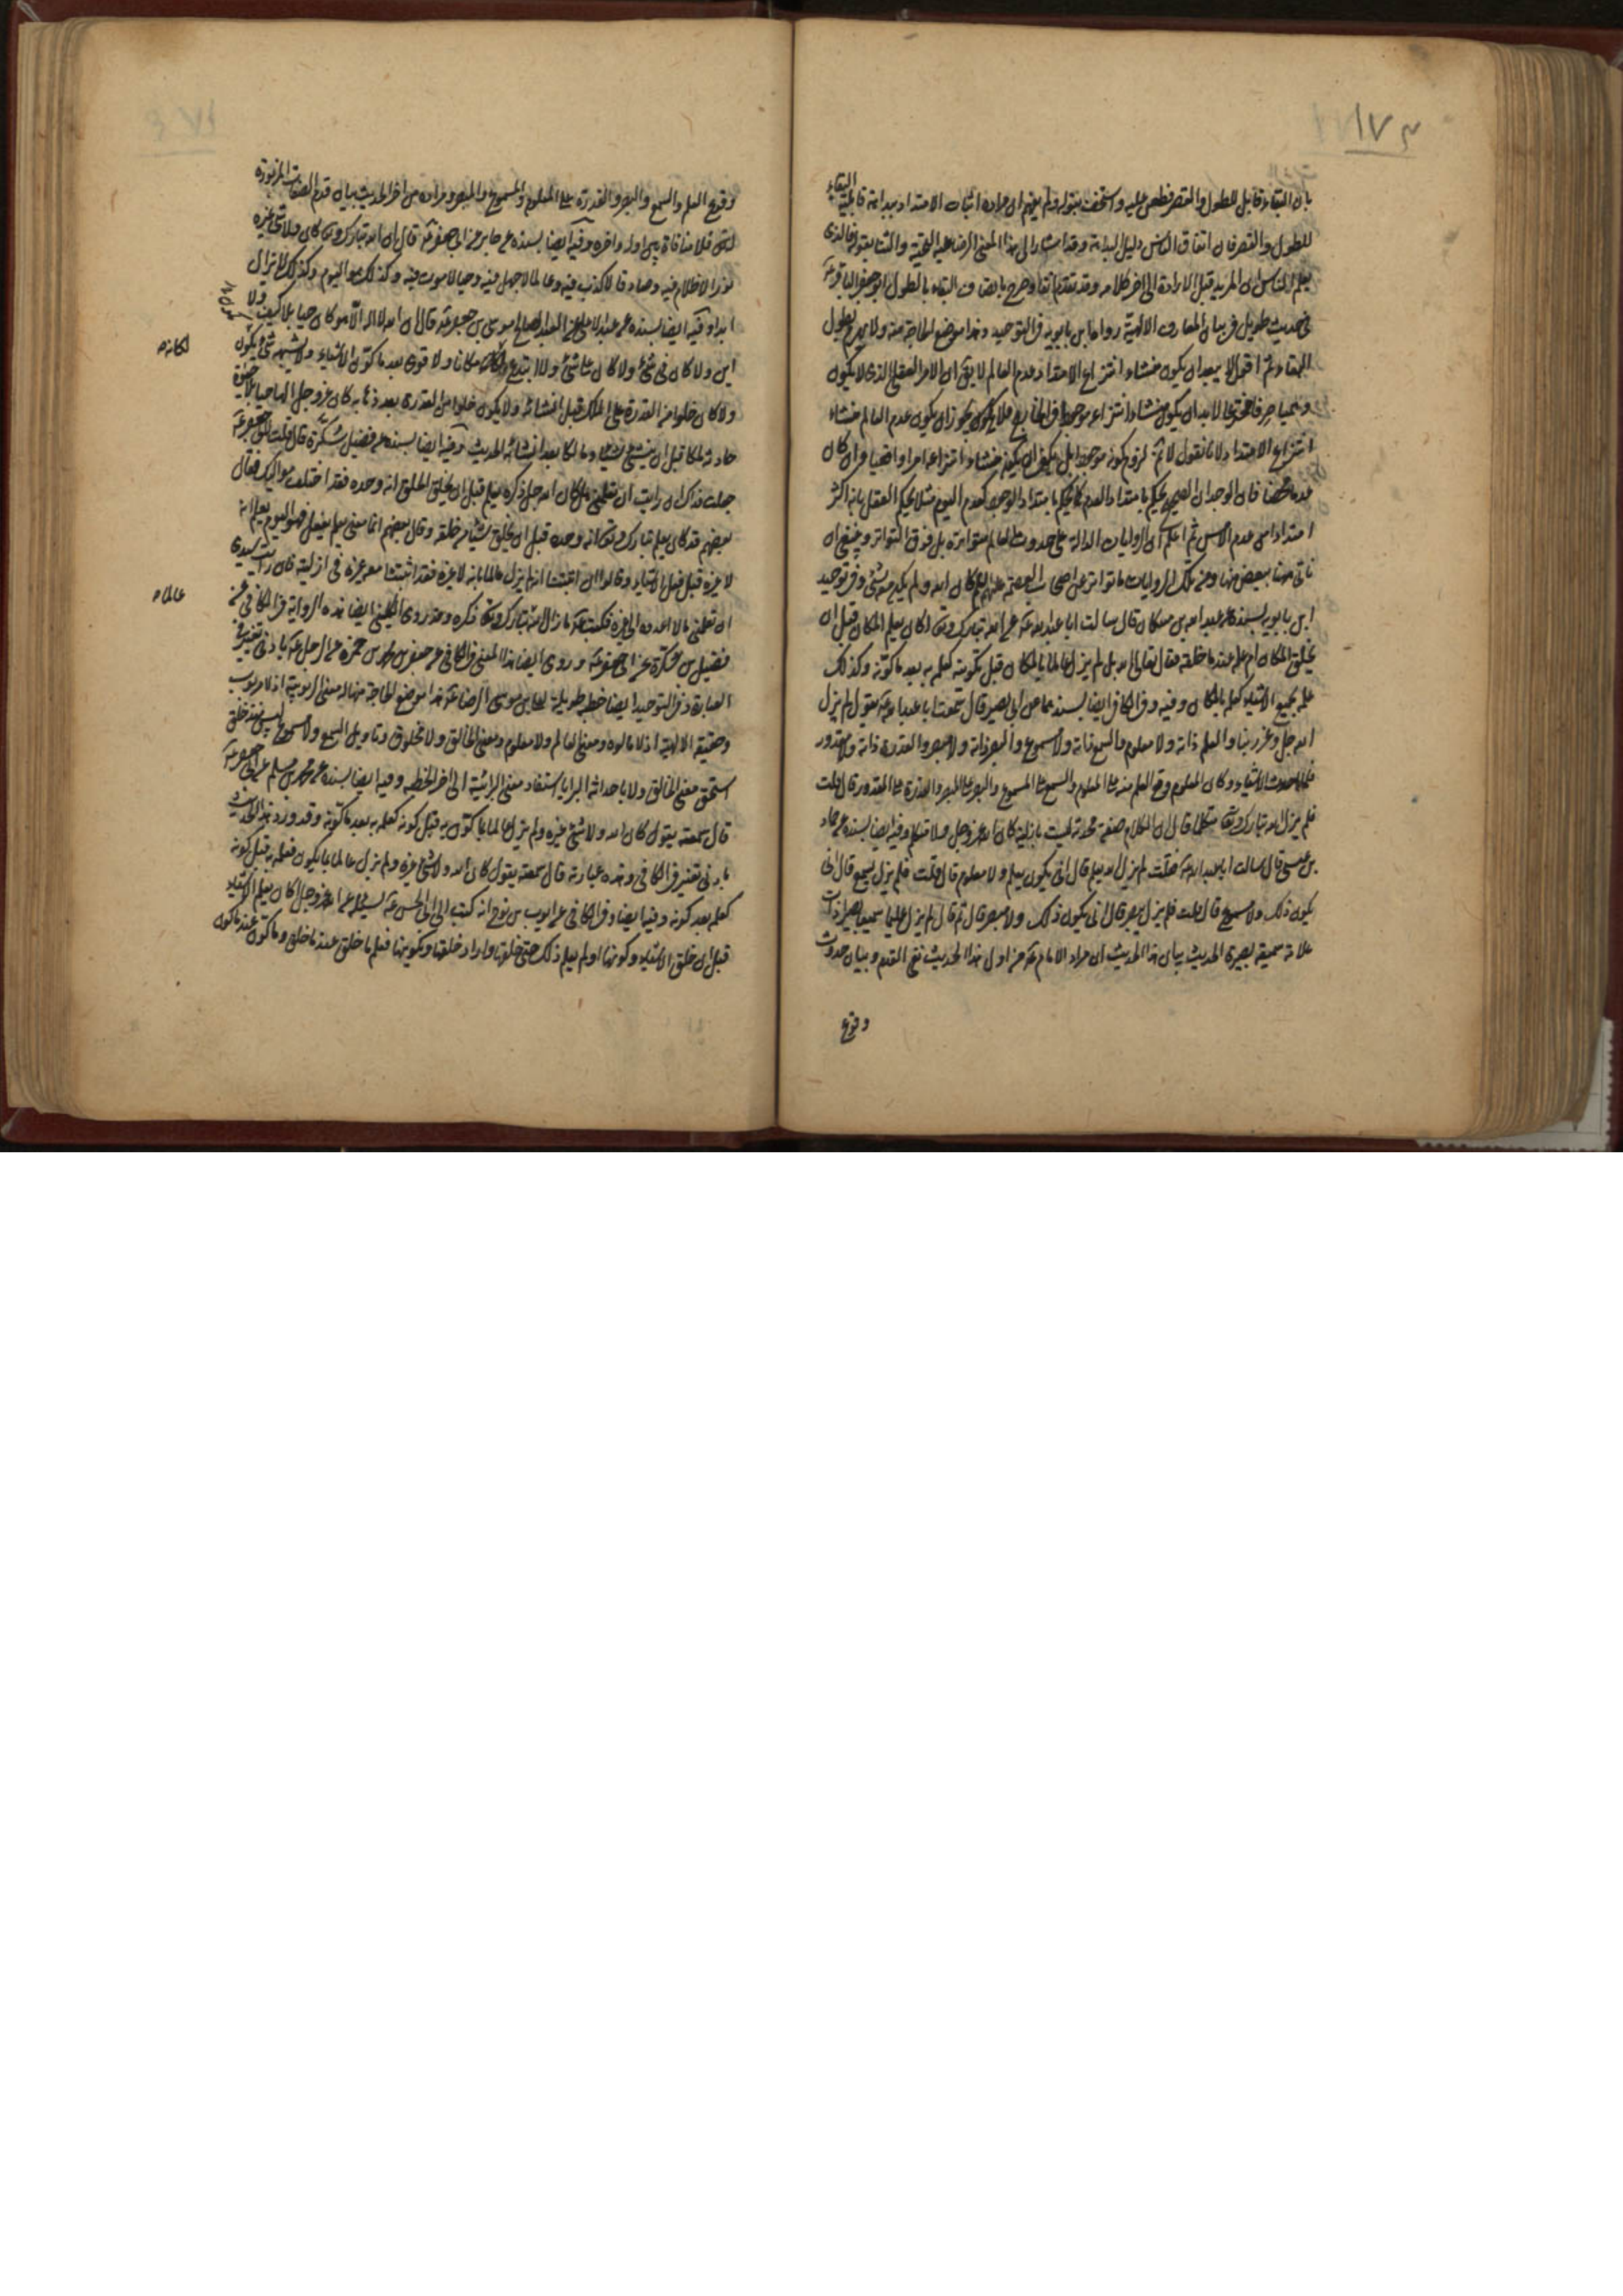 بان البقاء قابل للطول والقصر فطعن عليه واستخف بقوله ولم يفهم ان مراده اثبات الامتداد بداهة قابلية البقاء
للطول والقصر فان اتفاق الناس دليل البداهة وقد اشار الى هذا المعنى الرضا عليه التحية والثنا بقوله فالذى
يعلم الناس ان المريد قبل الارادة الى اخر كلامه وقد تقدم انفا وصرح باتصاف البقاء بالطول ابو جعفر الباقر عه
فى حديث طويل فى بيان المعارف الالهية رواها ابن بابويه فى التوحيد وهذا موضع الحاجة منه ولا بطول
البقاء ثم اقول لا يبعد ان يكون منشاء انتزاع الامتداد عدم العالم لا يق ان الامر العقلى الذى لا يكون
وهميا صرفا مخترعا لابد ان يكون منشاء انتزاعه موجودا فى الخارج فلا يجوز ان يكون عدم العالم منشاء
انتزاع الامتداد لانا نقول لا ثم لزوم كونه موجودا بل يكفى ان يكون منشاء انتزاعه امرا واقعيا وان كان
عدما محضا فان الوجدان الصحيح يحكم بامتداد العدم كما يحكم بامتداد الوجود كعدم اليوم مثلا يحكم العقل بانه اكثر
امتدادا من عدم الامس ثم اعلم ان الروايات الدالة على حدوث العالم متواترة بل فوق التواتر وينبغى ان
ناتى هنا ببعض منها ومن تلك الروايات ما تواتر عن اصحاب العصمة عليهم كان الله ولم يكن معه شئ وفى توحيد
ابن بابويه بسنده عن عبد الله بن مسكان قال سالت ابا عبد الله عه عن الله تبارك وتعالى اكان يعلم المكان قبل ان
يخلق المكان ام علمه عند ما خلقه فقال تعالى الله بل لم يزل عالما بالمكان قبل تكوينه كعلمه به بعد ما كونه وكذلك
علمه بجميع الاشياء كعلمه بالمكان وفيه وفى الكافى ايضا بسندهما عن ابى بصير قال سمعت ابا عبد الله عه يقول لم يزل
الله جل وعز ربنا والعلم ذاته ولا معلوم والسمع ذاته ولا مسموع والبصر ذاته ولا مبصر والقدرة ذاته ولا مقدور
فلما احدث الاشياء وكان المعلوم وقع العلم منه على المعلوم والسمع على المسموع والبصر على المبصر والقدرة على المقدور قال قلت
فلم يزل الله تبارك وتعالى متكلما قال ان الكلام صفة محدثة ليست بازلية كان الله عز وجل ولا متكلم وفيه ايضا بسنده عن حماد
بن عيسى قال سالت ابا عبد الله عه فقلت لم يزل الله يعلم قال انى يكون يعلم ولا معلوم قال قلت فلم يزل يسمع قال انى
يكون ذلك ولا مسموع قال قلت فلم يزل يبصر قال انى يكون ذلك ولا مبصر قال ثم قال لم يزل عليما سميعا بصيرا ذات
علامة سميعة بصيرة الحديث بيان هذا الحديث ان مراد الامام عه من اول هذا الحديث نفى القدم وبيان حدوث
وقوع
وقوع العلم والسمع والبصر والقدرة على المعلوم والمسموع والمبصر ومراده من اخر الحديث بيان قدم الصفات المزبورة
فلا منافاة بين اوله واخره وفيه ايضا بسنده عن جابر عن ابى جعفر عه قال ان الله تبارك وتعالى كان ولا شئ غيره
نورا لا ظلام فيه وصادقا لا كذب فيه وعالما لا جهل فيه وحيا لا موت فيه وكذلك هو اليوم وكذلك لا يزال
ابدا وفيه ايضا بسنده عن عبد الاعلى عن العبد الصالح موسى بن جعفر عه قال ان الله لا اله الا هو كان حيا بلا كيف ولا
اين ولا كان فى شئ ولا كان على شئ ولا ابتدع مكانا ولا قوى بعد ما كون الاشياء ولا يشبهه شئ يكون
لمكانه
ولا كان خلوا من القدرة على الملك قبل انشائه ولا يكون خلوا من القدرة بعد ذهابه كان عز وجل الها حيا بلا حيوة
حادثة ملكا قبل ان ينشئ شيئا ومالكا بعد انشائه الحديث وفيه ايضا بسنده عن فضيل بن سكرة قال قلت لابى جعفر عه
جعلت فداك ان رايت ان تعلمنى هل كان الله جل ذكره يعلم قبل ان يخلق الخلق انه وحده فقد اختلف مواليك فقال
بعضهم قد كان يعلم تبارك وتعالى انه وحده قبل ان يخلق شيئا من خلقه وقال بعضهم انما معنى يعلم يفعل فهو اليوم يعلم انه
لا غيره قبل فعل الاشياء وقالوا ان اثبتنا انه لم يزل عالما بانه لا غيره فقد اثبتنا معه غيره فى ازليته فان رايت سيدى
ان تعلمنى ما لا اعدوه الى غيره فكتب عه ما زال الله تبارك وتعالى ذكره وقد روى الكلينى ايضا هذه الرواية فى الكافى عن
عالما
فضيل بن سكرة عن ابى جعفر عه وروى ايضا هذا المعنى فى الكافى عن جعفر بن محمد بن حمزة عن الرجل عه بادنى تغيير فى
العبارة وفى التوحيد ايضا خطبة طويلة لعلى بن موسى الرضا عه هذا موضع الحاجة منها له معنى الربوبية اذ لا مربوب
وحقيقة الالهية اذ لا مالوه ومعنى العالم ولا معلوم ومعنى الخالق ولا مخلوق وتاويل السمع ولا مسموع ليس منذ خلق
استحق معنى الخالق ولا باحداثه البرايا استفاد معنى البرائية الى اخر الخطبة وفيه ايضا بسنده عن محمد بن مسلم عن ابى جعفر عه
قال سمعته يقول كان الله ولا شئ غيره ولم يزل عالما بما كون به قبل كونه كعلمه به بعد ما كونه وقد ورد هذا الحديث
بادنى تغيير فى الكافى وهذه عبارته قال سمعته يقول كان الله ولا شئ غيره ولم يزل عالما بما يكون فعلمه به قبل كونه
كعلمه بعد كونه وفيه ايضا وفى الكافى عن ايوب بن نوح انه كتب الى ابى الحسن عه يسئله عن الله عز وجل اكان يعلم الاشياء
قبل ان خلق الاشياء وكونها اولم يعلم ذلك حتى خلقها واراد خلقها وتكوينها فعلم ما خلق عند ما خلق وما كون عند ما كون